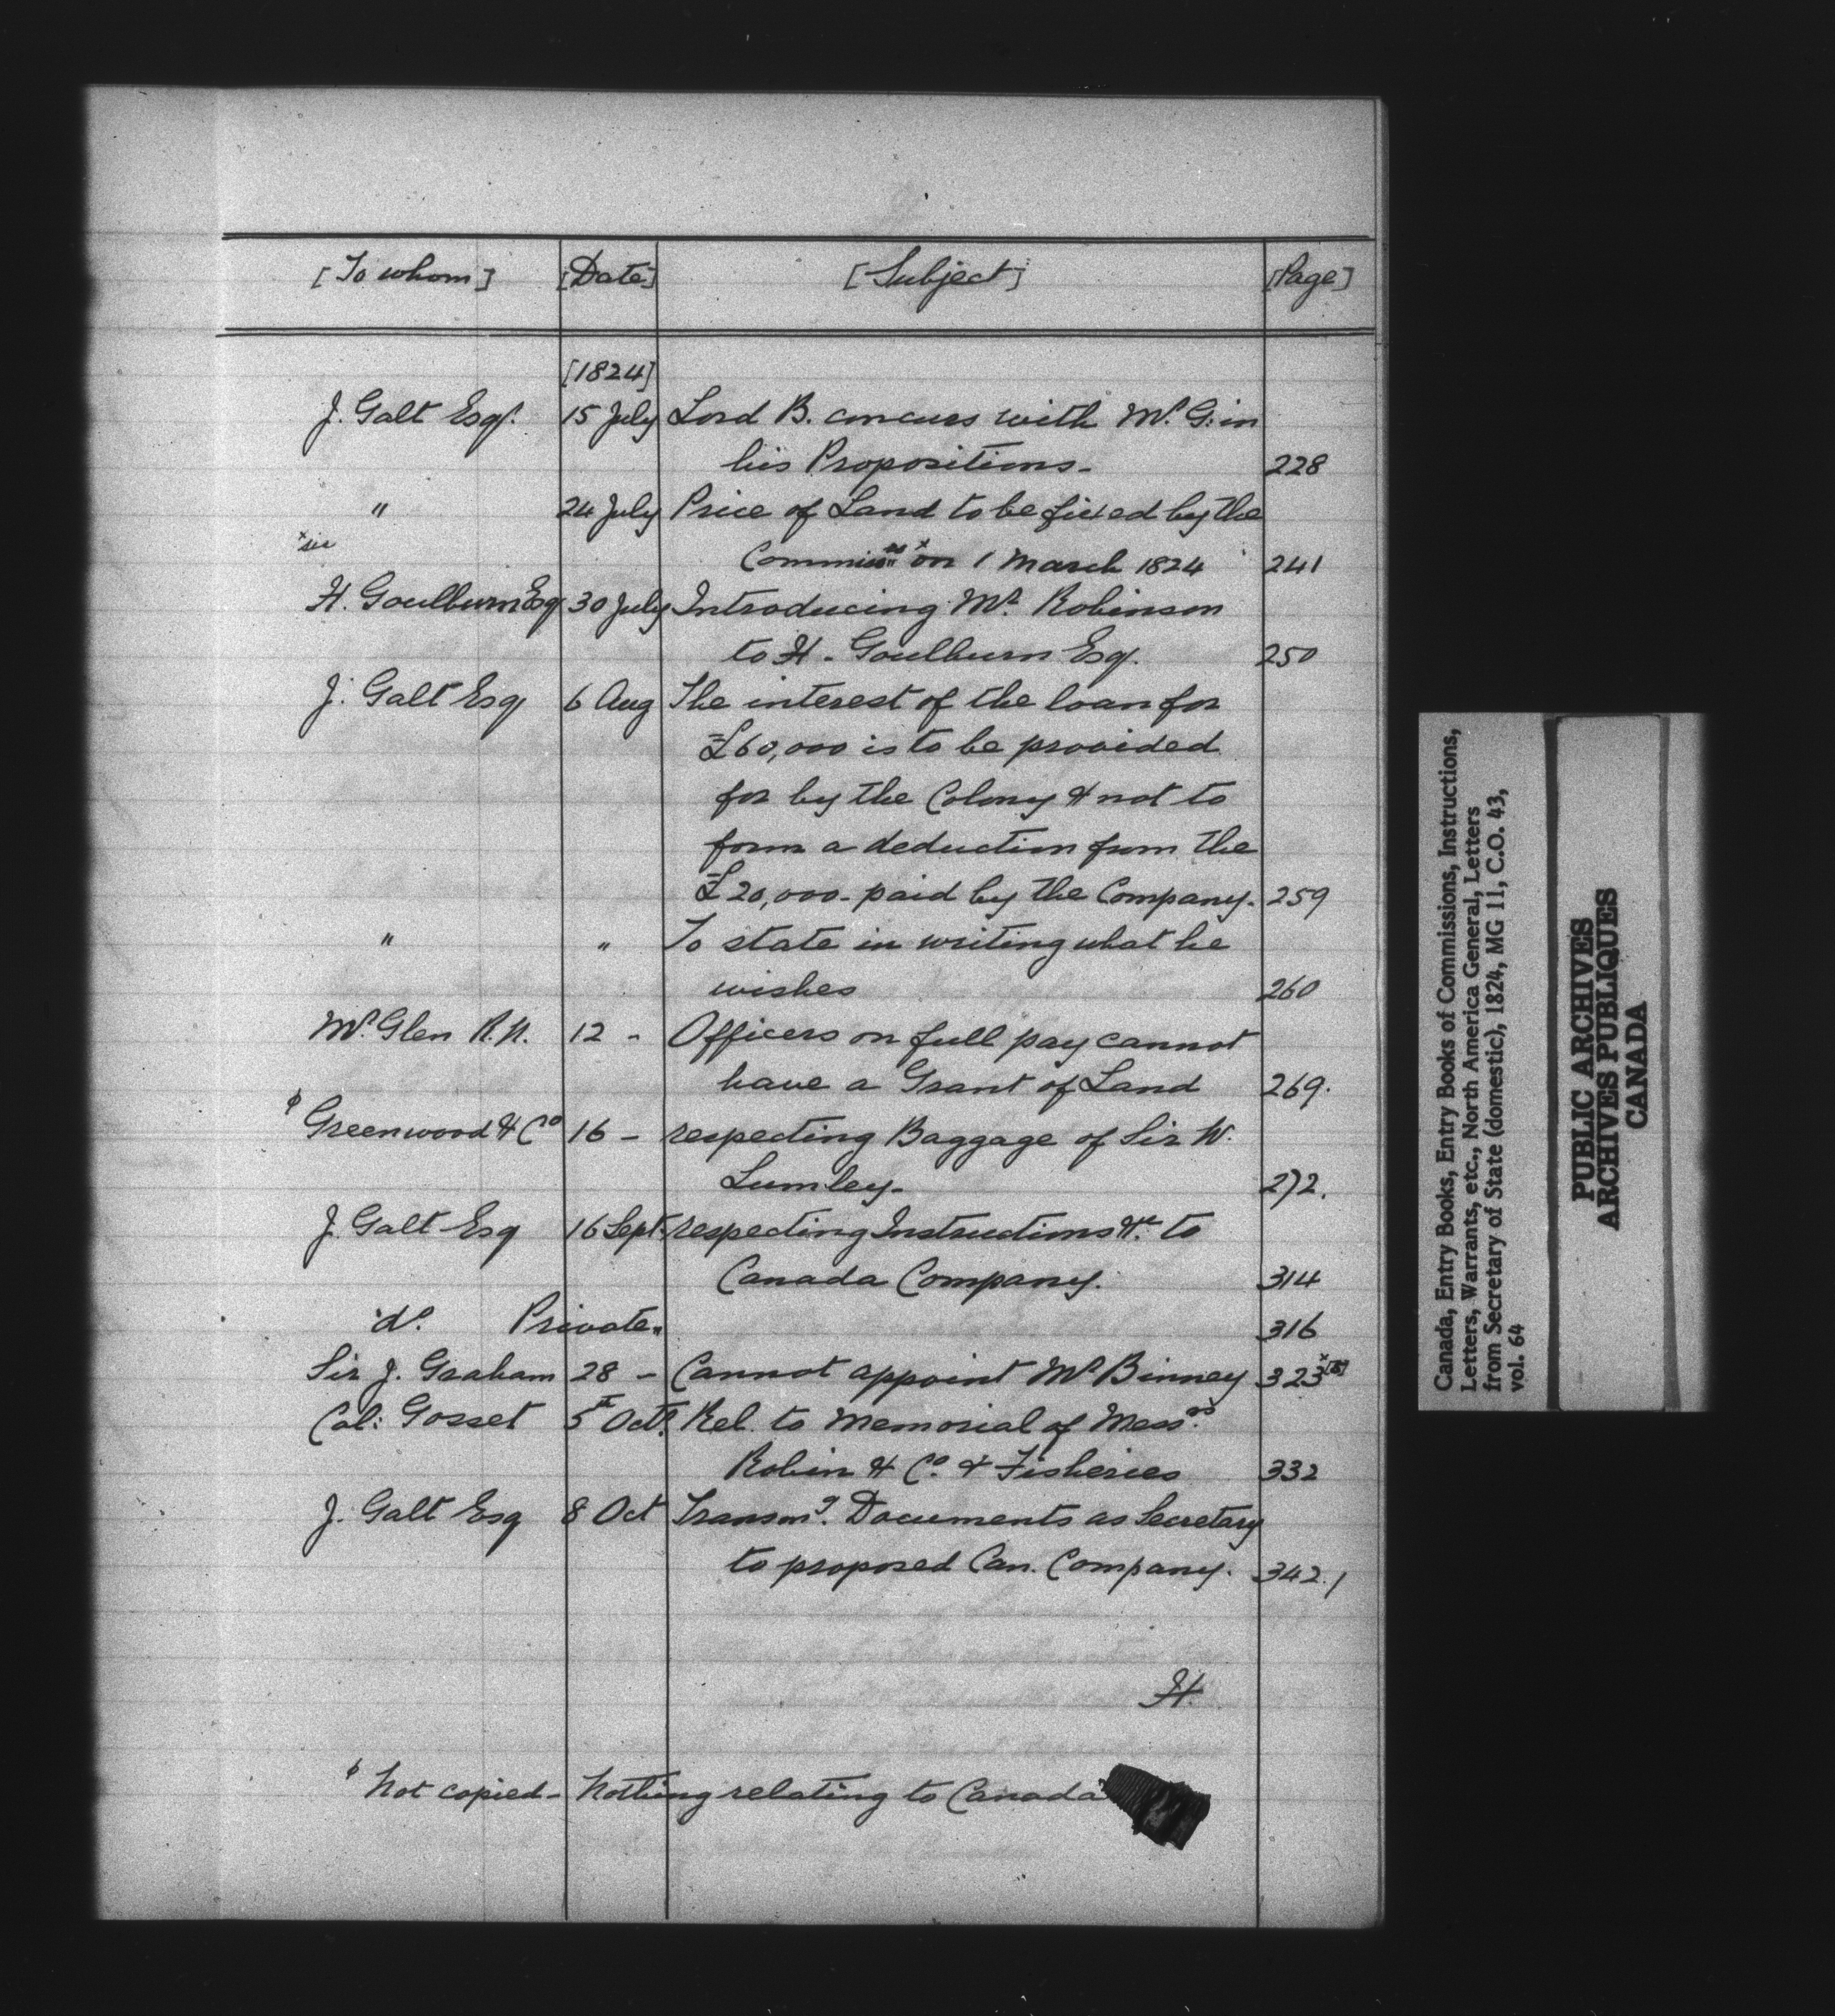 [To whom] [Date] [Subject] [Page]
[1824]
J. Galt Esqr. 15 July Lord B. concurs with Mr. G. in
his Propositions- 228
" 24 July Price of Land to be fixed by the
x sic
Commissrs x on 1 March 1824 241
H. Goulburn Esq 30 July Introducing Mr. Robinson
to H. Goulburn Esq. 250
J. Galt Esq 6 Aug The interest of the loan for
£60,000 is to be provided
for by the Colony & not to
form a deduction from the
£20,000- paid by the Company. 259
" " To state in writing what he
wishes 260
Mr. Glen R.N. 12 - Officers on full pay cannot
have a Grant of Land 269.
φ Greenwood & Co 16 - respecting Baggage of Sir W.
Lumley- 272.
J. Galt Esq 16 Sept. respecting Instructions &c. to
Canada Company. 314
do. Private " 316
Sir J. Graham 28 - Cannot appoint Mr Binney 323 x
Col: Gosset 5 Octr. Rel. to Memorial of Messrs.
Robin & Co. & Fisheries 332
J. Galt Esq 8 Oct Transmg. Documents as Secretary
to proposed Can. Company. 342.
H.
φ Not copied- Nothing relating to Canada
Canada, Entry Books, Entry Books of Commissions, Instructions,
Letters, Warrants, etc., North America General, Letters
from Secretary of State (domestic), 1824, MG 11, C.O. 43,
vol. 64
PUBLIC ARCHIVES
ARCHIVES PUBLIQUES
CANADA